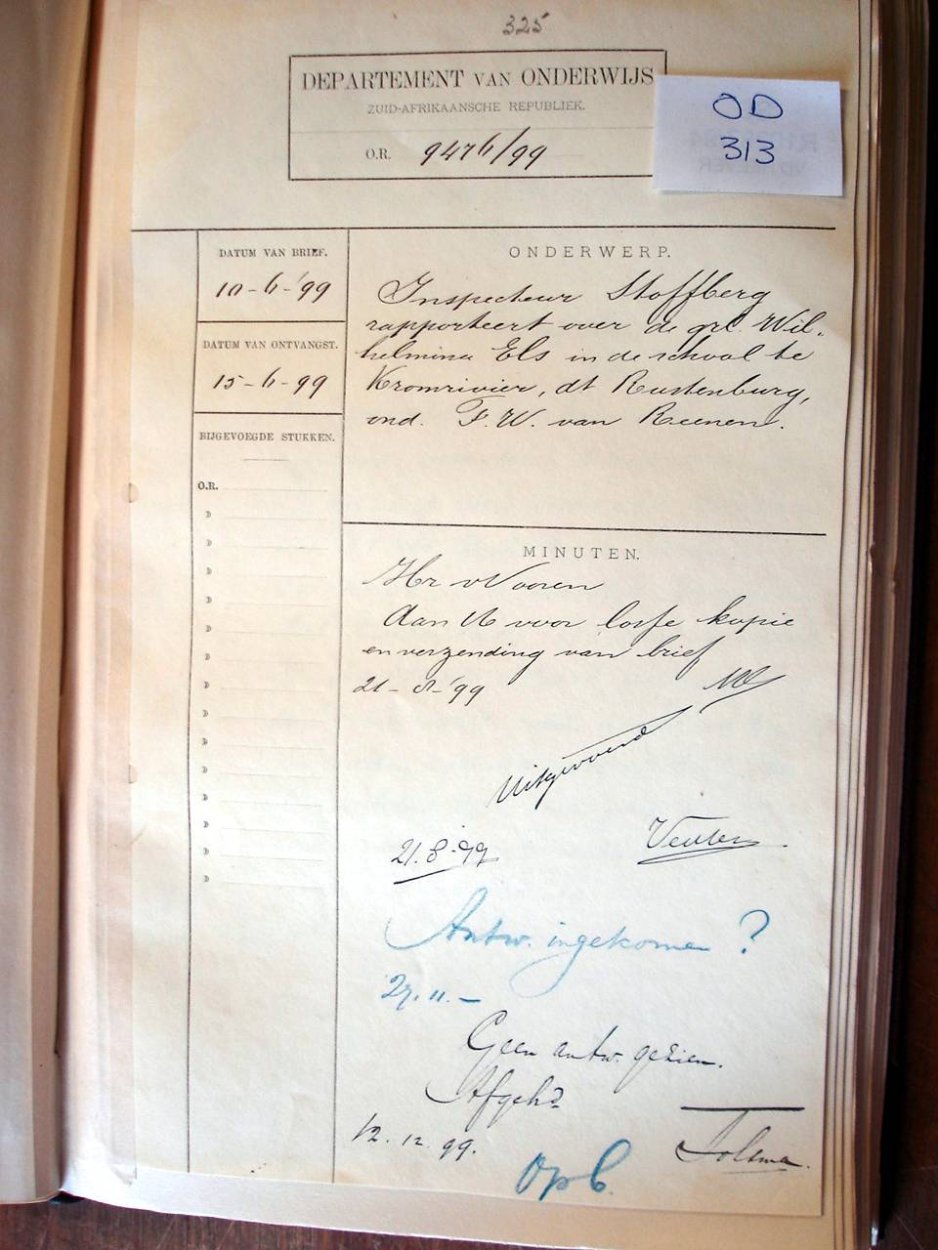 325
DEPARTEMENT VAN ONDERWIJS
ZUID-AFRIKAANSCHE REPUBLIEK.
O.R. 9476/99
OD
313
DATUM VAN BRIEF.
10-6-'99
DATUM VAN ONTVANGST.
15-6-99
BIJGEVOEGDE STUKKEN.
O.R.
ONDERWERP.
Inspecteur Stoffberg
rapporteert over de grl. Wil-
helmina Els in de school te
Kromrivier, dt Rustenburg,
ond. F.W. van Reenen.
MINUTEN.
Hr v Vooren
Aan U voor losse kopie
en verzending van brief
21-8-'99
Uitgevoerd
21.8.99
Venter
Antw. ingekomen?
27.11.-
Geen antw. gezien.
Afgeh?
12.12.99.
Tolsma.
Op b.